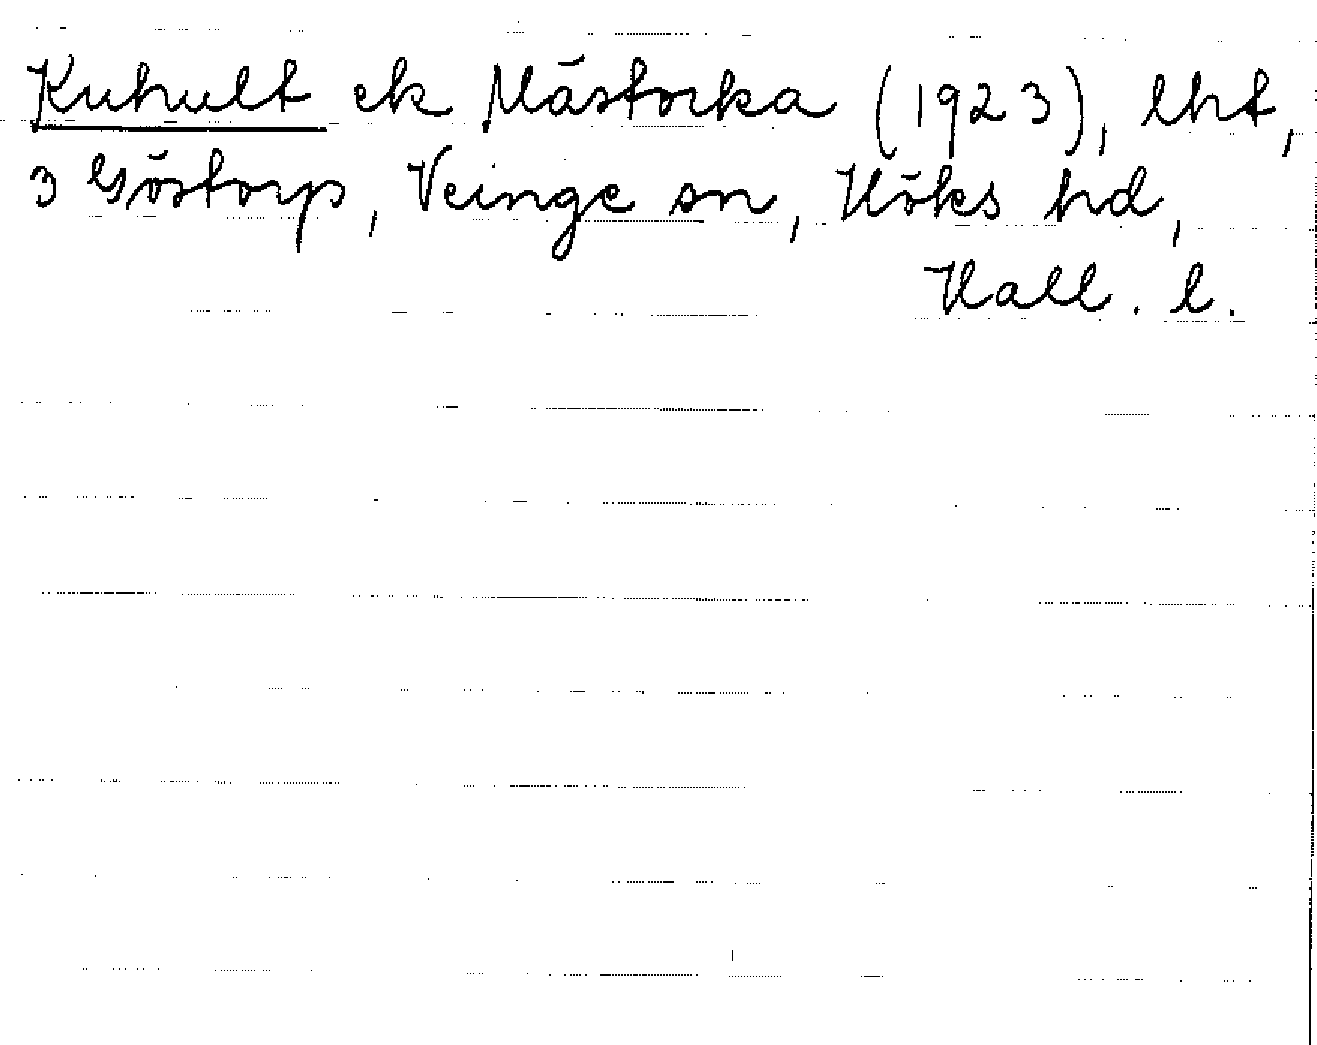 Kuhult ek Mästocka (1923), lht,
3 Göstorp, Veinge sn, Höks hd,
Hall. l.